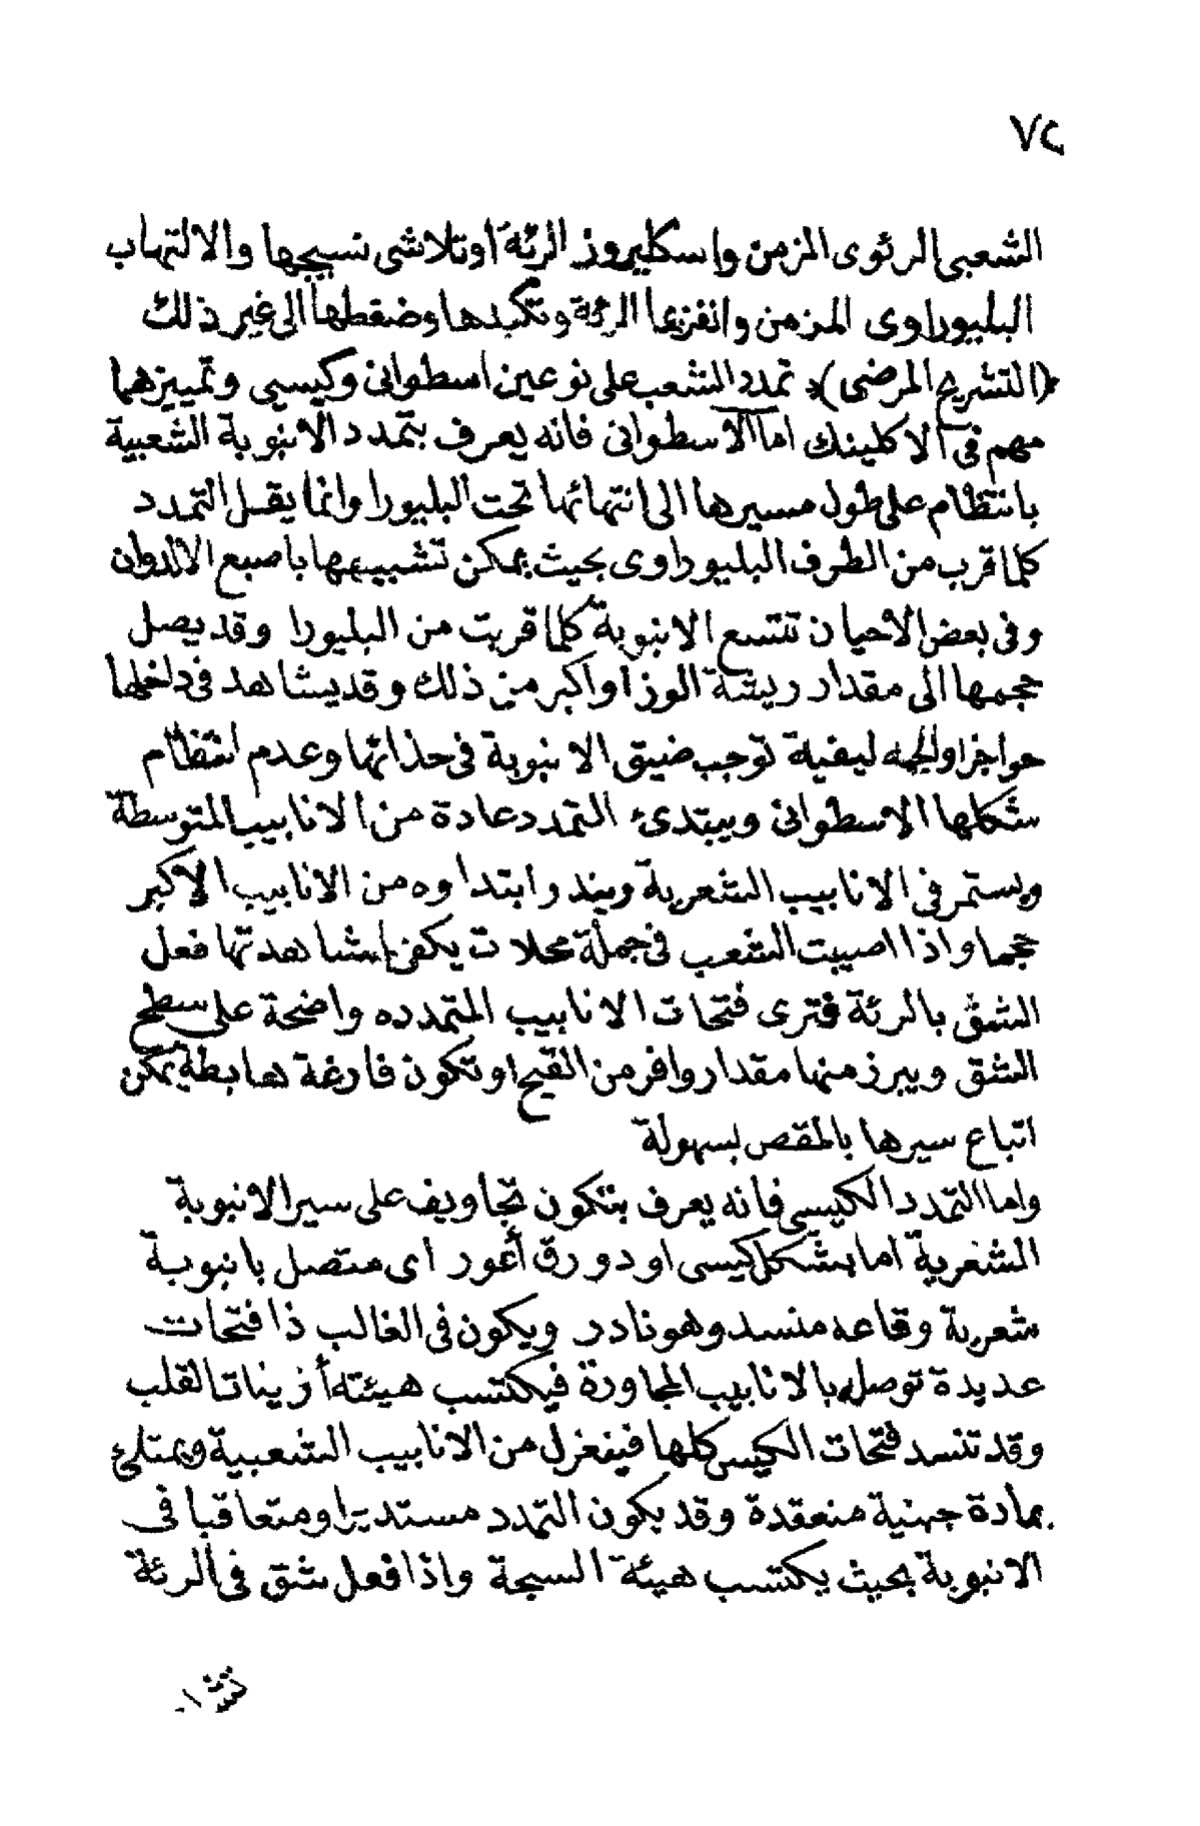 ٧٢
الشعبى الرئوى المزمن واسكليروز الرئة اوتلاشى نسيجها والالتهاب
البليوراوى المزمن وانفزيما الرئة وتكبدها وضغطها الى غير ذلك
﴿(التشريح المرضى)﴾ تمدد الشعب على نوعين اسطوانى وكيسى وتمييزهما
مهم فى الاكلينك اما الاسطوانى فانه يعرف بتمدد الانبوبة الشعبية
بانتظام على طول مسيرها الى انتهائها تحت البليورا وانما يقل التمدد
كلما قرب من الطرف البليوراوى بحيث يمكن تشبيهها باصبع الالدوان
وفى بعض الاحيان تتسع الانبوبة كلما قربت من البليورا وقد يصل
حجمها الى مقدار ريشة الوز أواكبر من ذلك وقد يشاهد فى داخلها
حواجز اولحمه ليفية توجب ضيق الانبوبة فى حذائها وعدم انتظام
شكلها الاسطوانى ويبتدئ التمدد عادة من الانابيب المتوسطة
ويستمر فى الانابيب الشعرية ويندر ابتداوه من الانابيب الاكبر
حجما واذا اصيبت الشعب فى جملة محلات يكفى لمشاهدتها فعل
الشق بالرئة فترى فتحات الانابيب المتمدده واضحة على سطح
الشق ويبرز منها مقدار وافر من القيح اوتكون فارغة هابطة يمكن
اتباع سيرها بالمقص بسهولة
واما التمدد الكيسى فانه يعرف بتكون تجاويف على سير الانبوبة
الشغرية اما بشكل كيسى او دورق أعور اى متصل بانبوبة
شعرية وقاعه منسد وهو نادر ويكون فى الغالب ذا فتحات
عديدة توصله بالانابيب المجاورة فيكتسب هيئته أذينات القلب
وقد تنسد فتحات الكيس كلها فينعزل من الانابيب الشعبية ويمتلئ
بمادة جبنية منعقدة وقد يكون التمدد مستديرا ومتعاقبا فى
الانبوبة بحيث يكتسب هيئة السبحة واذا فعل شق فى الرئة